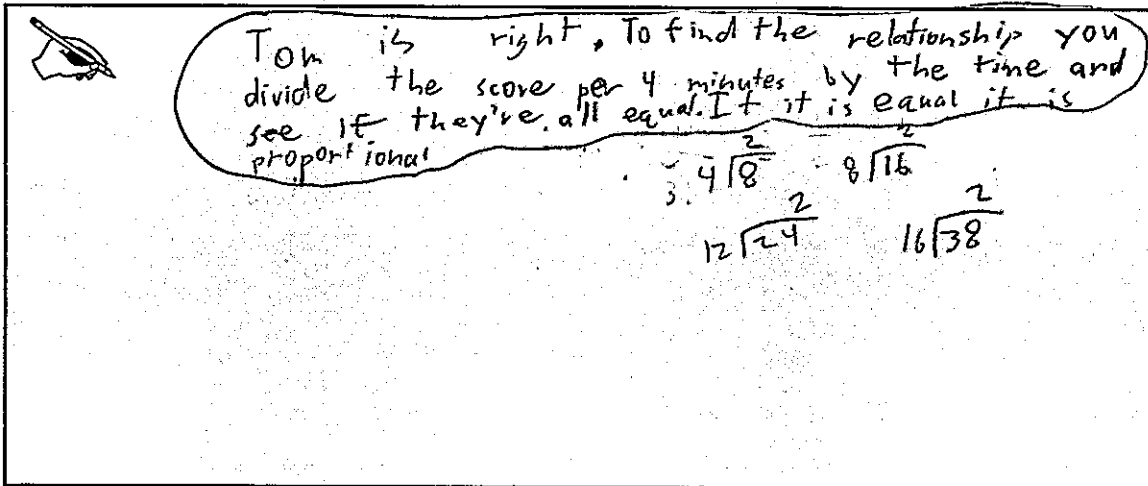 Tom is right. To find the relationship you
divide the score per 4 minutes by the time and
see if they're all equal. If it is equal it is
proportional
2 2
3. 4⟌8 8⟌16
2 2
12⟌24 16⟌38